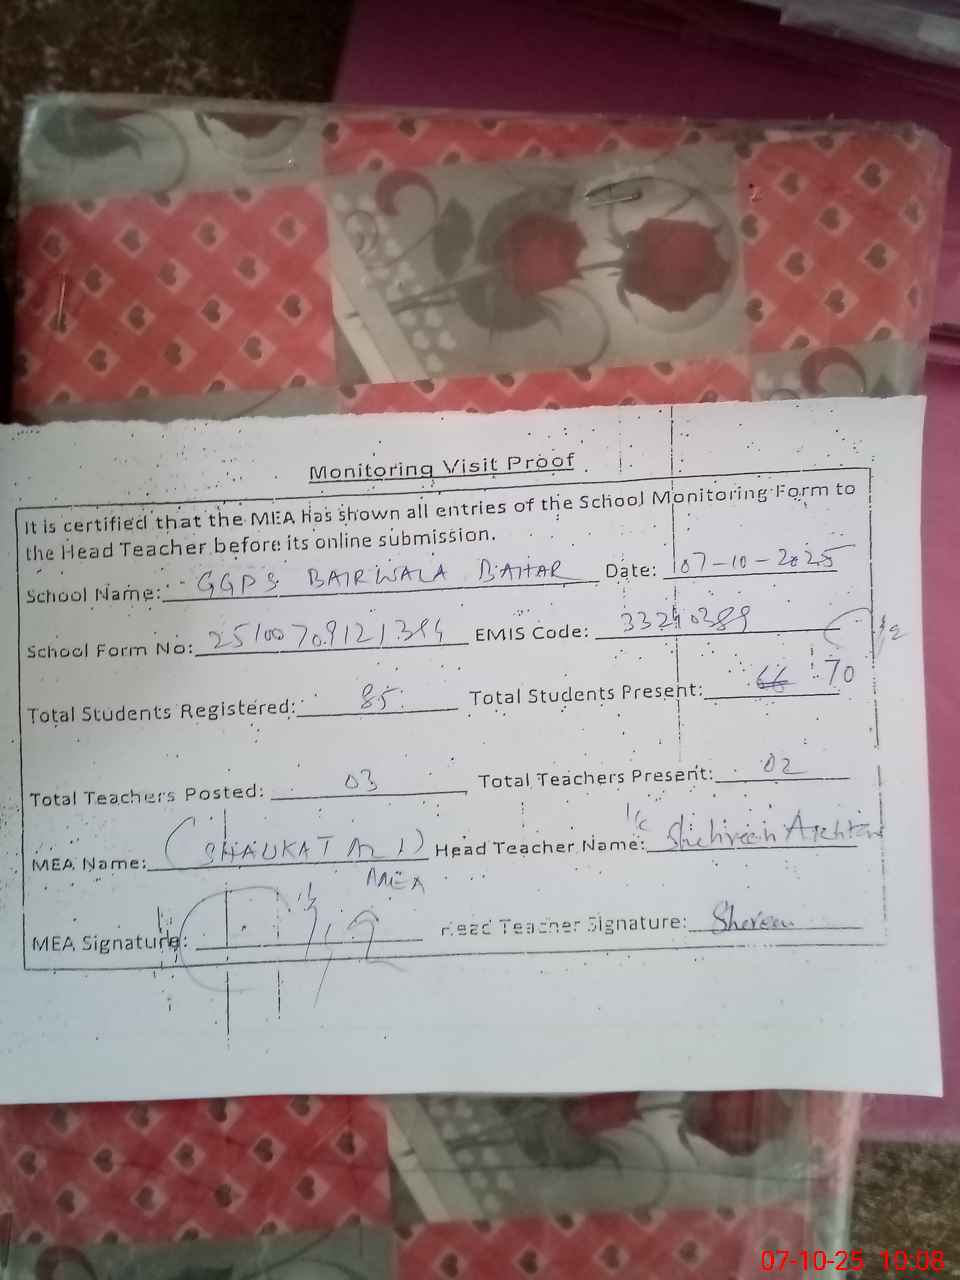 Monitoring Visit Proof
It is certified that the MEA has shown all entries of the School Monitoring Form to
the Head Teacher before its online submission.
School Name: GGPS BAIRWALA BAHAR Date: 07-10-2025
School Form No: EMIS Code: 33240389
Total Students Registered: 85 Total Students Present: 66 70
Total Teachers Posted: 03 Total Teachers Present: 02
MEA Name: (SHAUKAT ALI) Head Teacher Name: I/c Shehreen
MEA
MEA Signature: Head Teacher Signature:
07-10-25 10:08